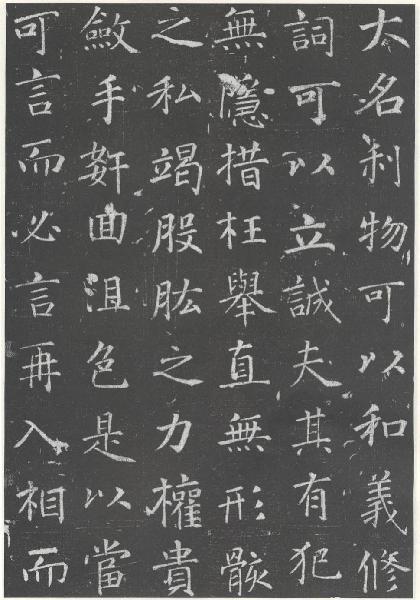 大名利物可以和義修
詞可以立誠夫其有犯
無隱措枉舉直無形骸
之私竭股肱之力權貴
斂手姧面沮色是以當
可言而必言再入相而